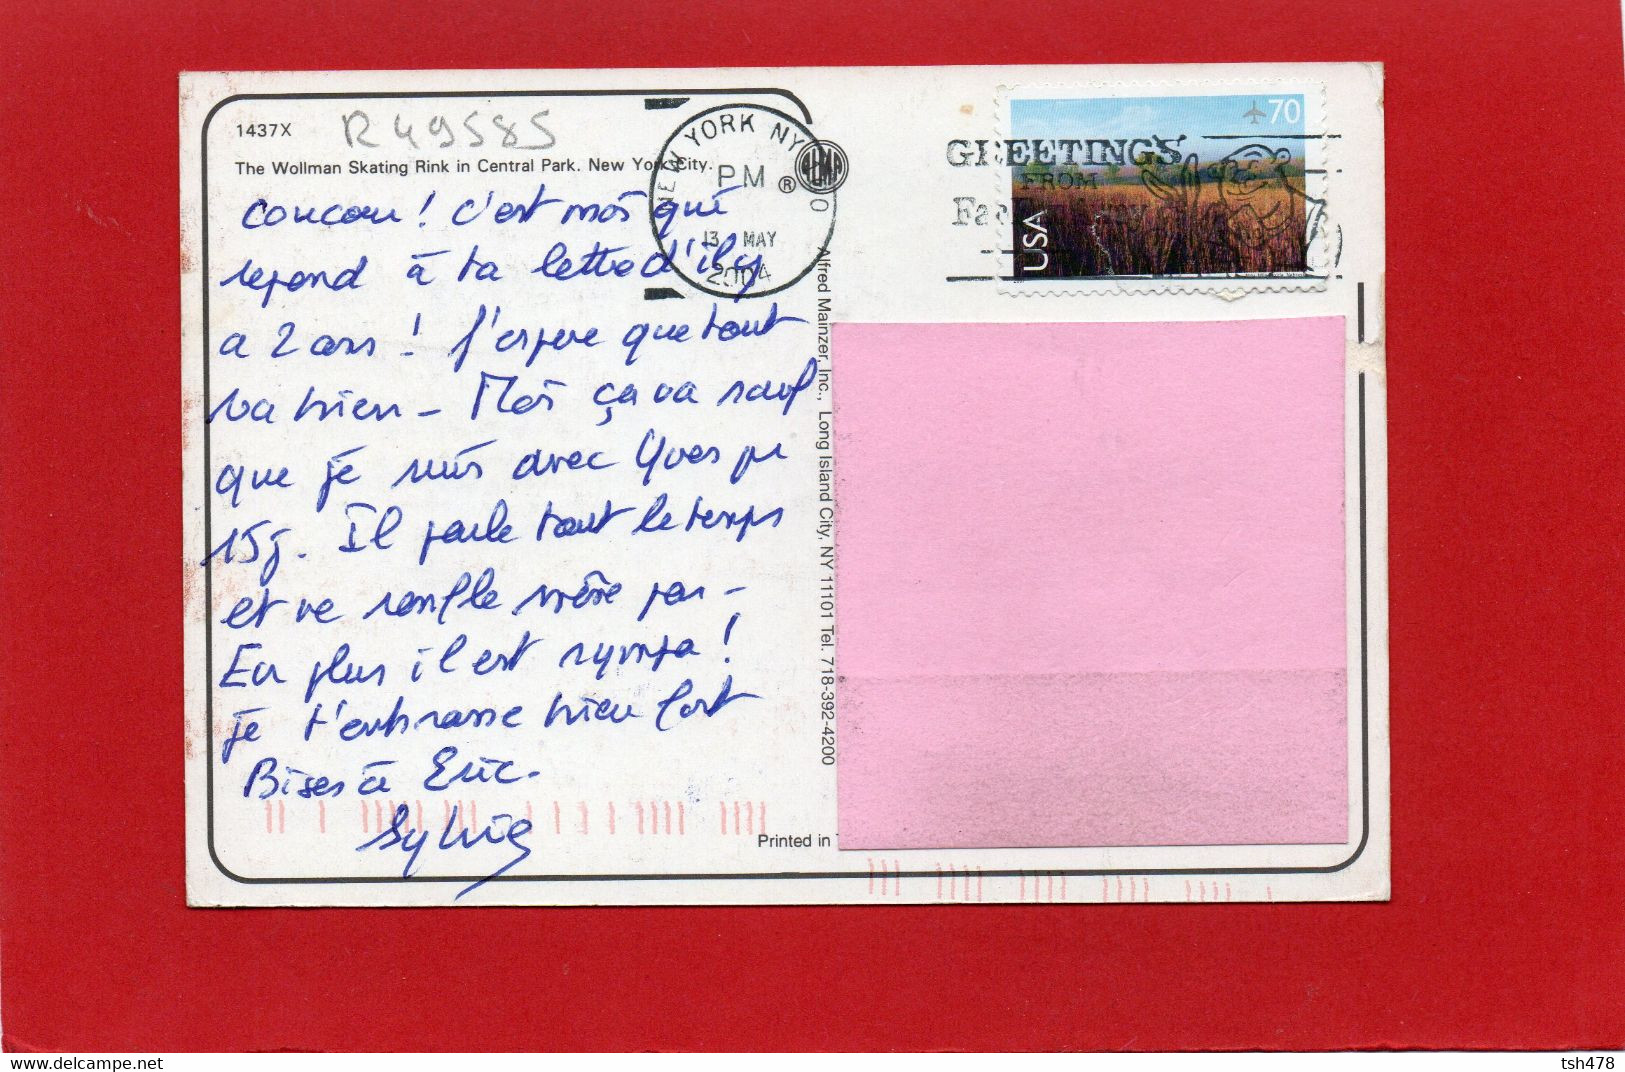 1437X
R49585
The Wollman Skating Rink in Central Park. New York City.
coucou! c'est moi qui
repond à ta lettre d'il y
a 2 ans! J'espere que tout
va bien - Moi ça va sauf
que je suis avec Yves pr
15j. Il parle tout le temps
et ne ronfle même pas -
En plus il est sympa!
je t'embrasse bien fort
Bises à Eric.
Sylvie
NEW YORK NY 100
PM
13 MAY
2004
®
Alfred Mainzer, Inc., Long Island City, NY 11101 Tel. 718-392-4200
Printed in
GREETINGS
FROM
70
USA
tsh478